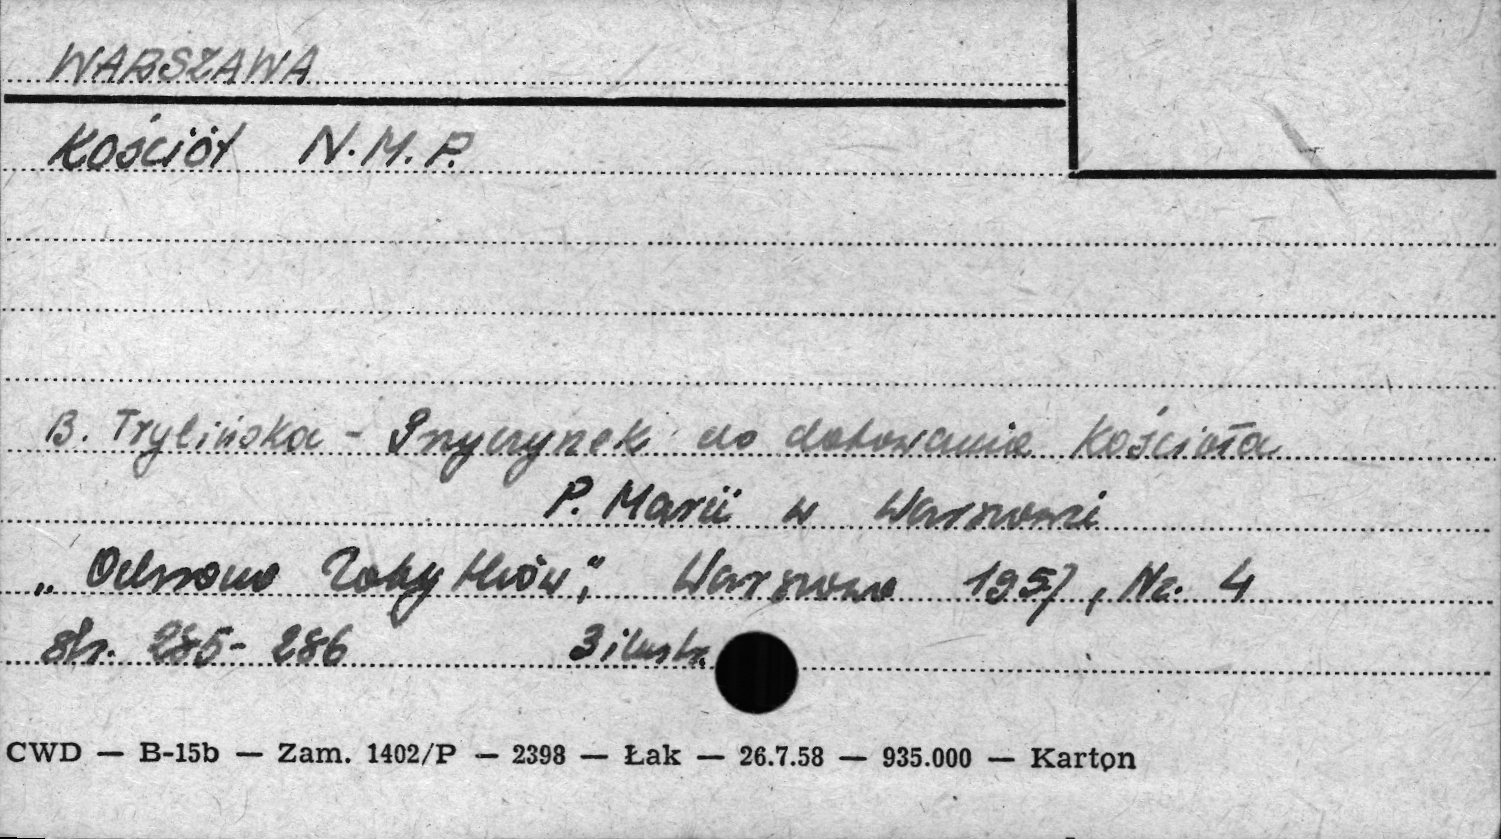 WARSZAWA
Kościół N.M.P.
B. Trylińska - Przyczynek do datowania Kościoła
P. Marii w Warszawi
"Ochrona Zabytków", Warszawa 1957, Nr. 4
str. 285-286 3 ilustr.
CWD — B-15b — Zam. 1402/P — 2398 — Łak — 26.7.58 — 935.000 — Karton